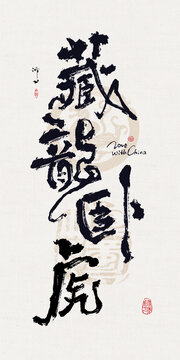 藏龍卧虎
Love
With China